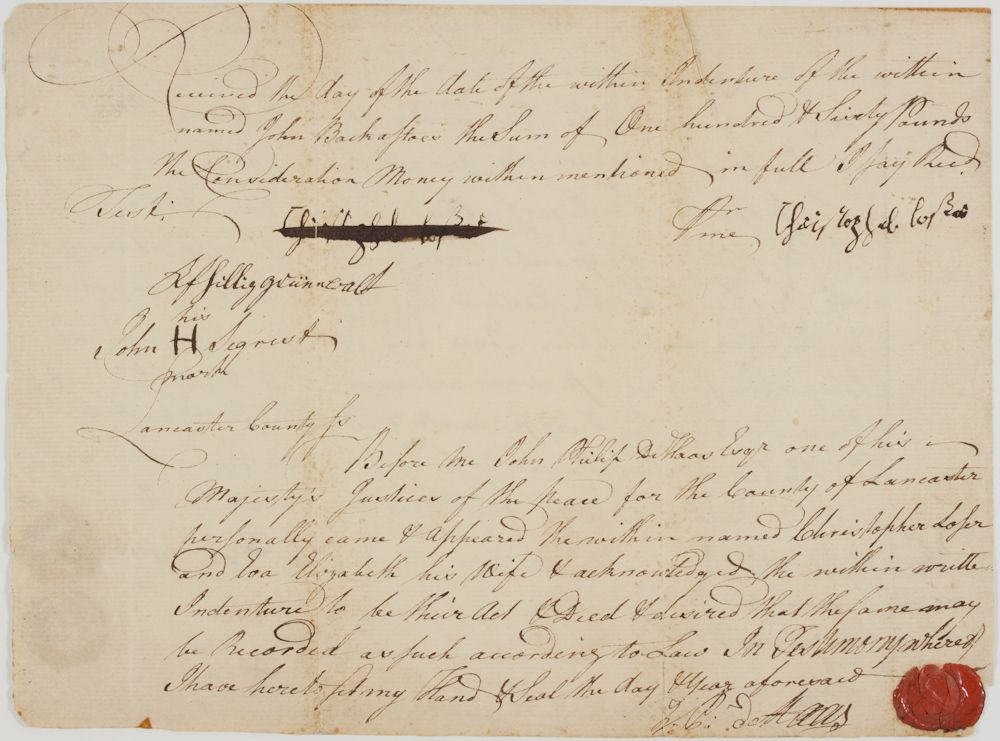 Received the day of the date of the within Indenture of the within
named John Backastoes the Sum of One hundred & Sixty Pounds
the Consideration Money within mentioned in full I say Recd.
Test. Pr me Christophel Loser
Philliggrünnewalt
his
John H Sigrist
mark
Lancaster County Ss
Before Me John Philip DeHaas Esqr one of his
Majesty's Justices of the peace for the County of Lancaster
personally came & Appeared the within named Christopher Loser
and Eva Elizabeth his Wife & acknowledged the within writte
Indenture to be their Act & Deed & desired that the same may
be Recorded as such according to Law In Testimony whereof
I have hereto set my Hand & Seal the day & Year aforesaid
J. P. deHaas